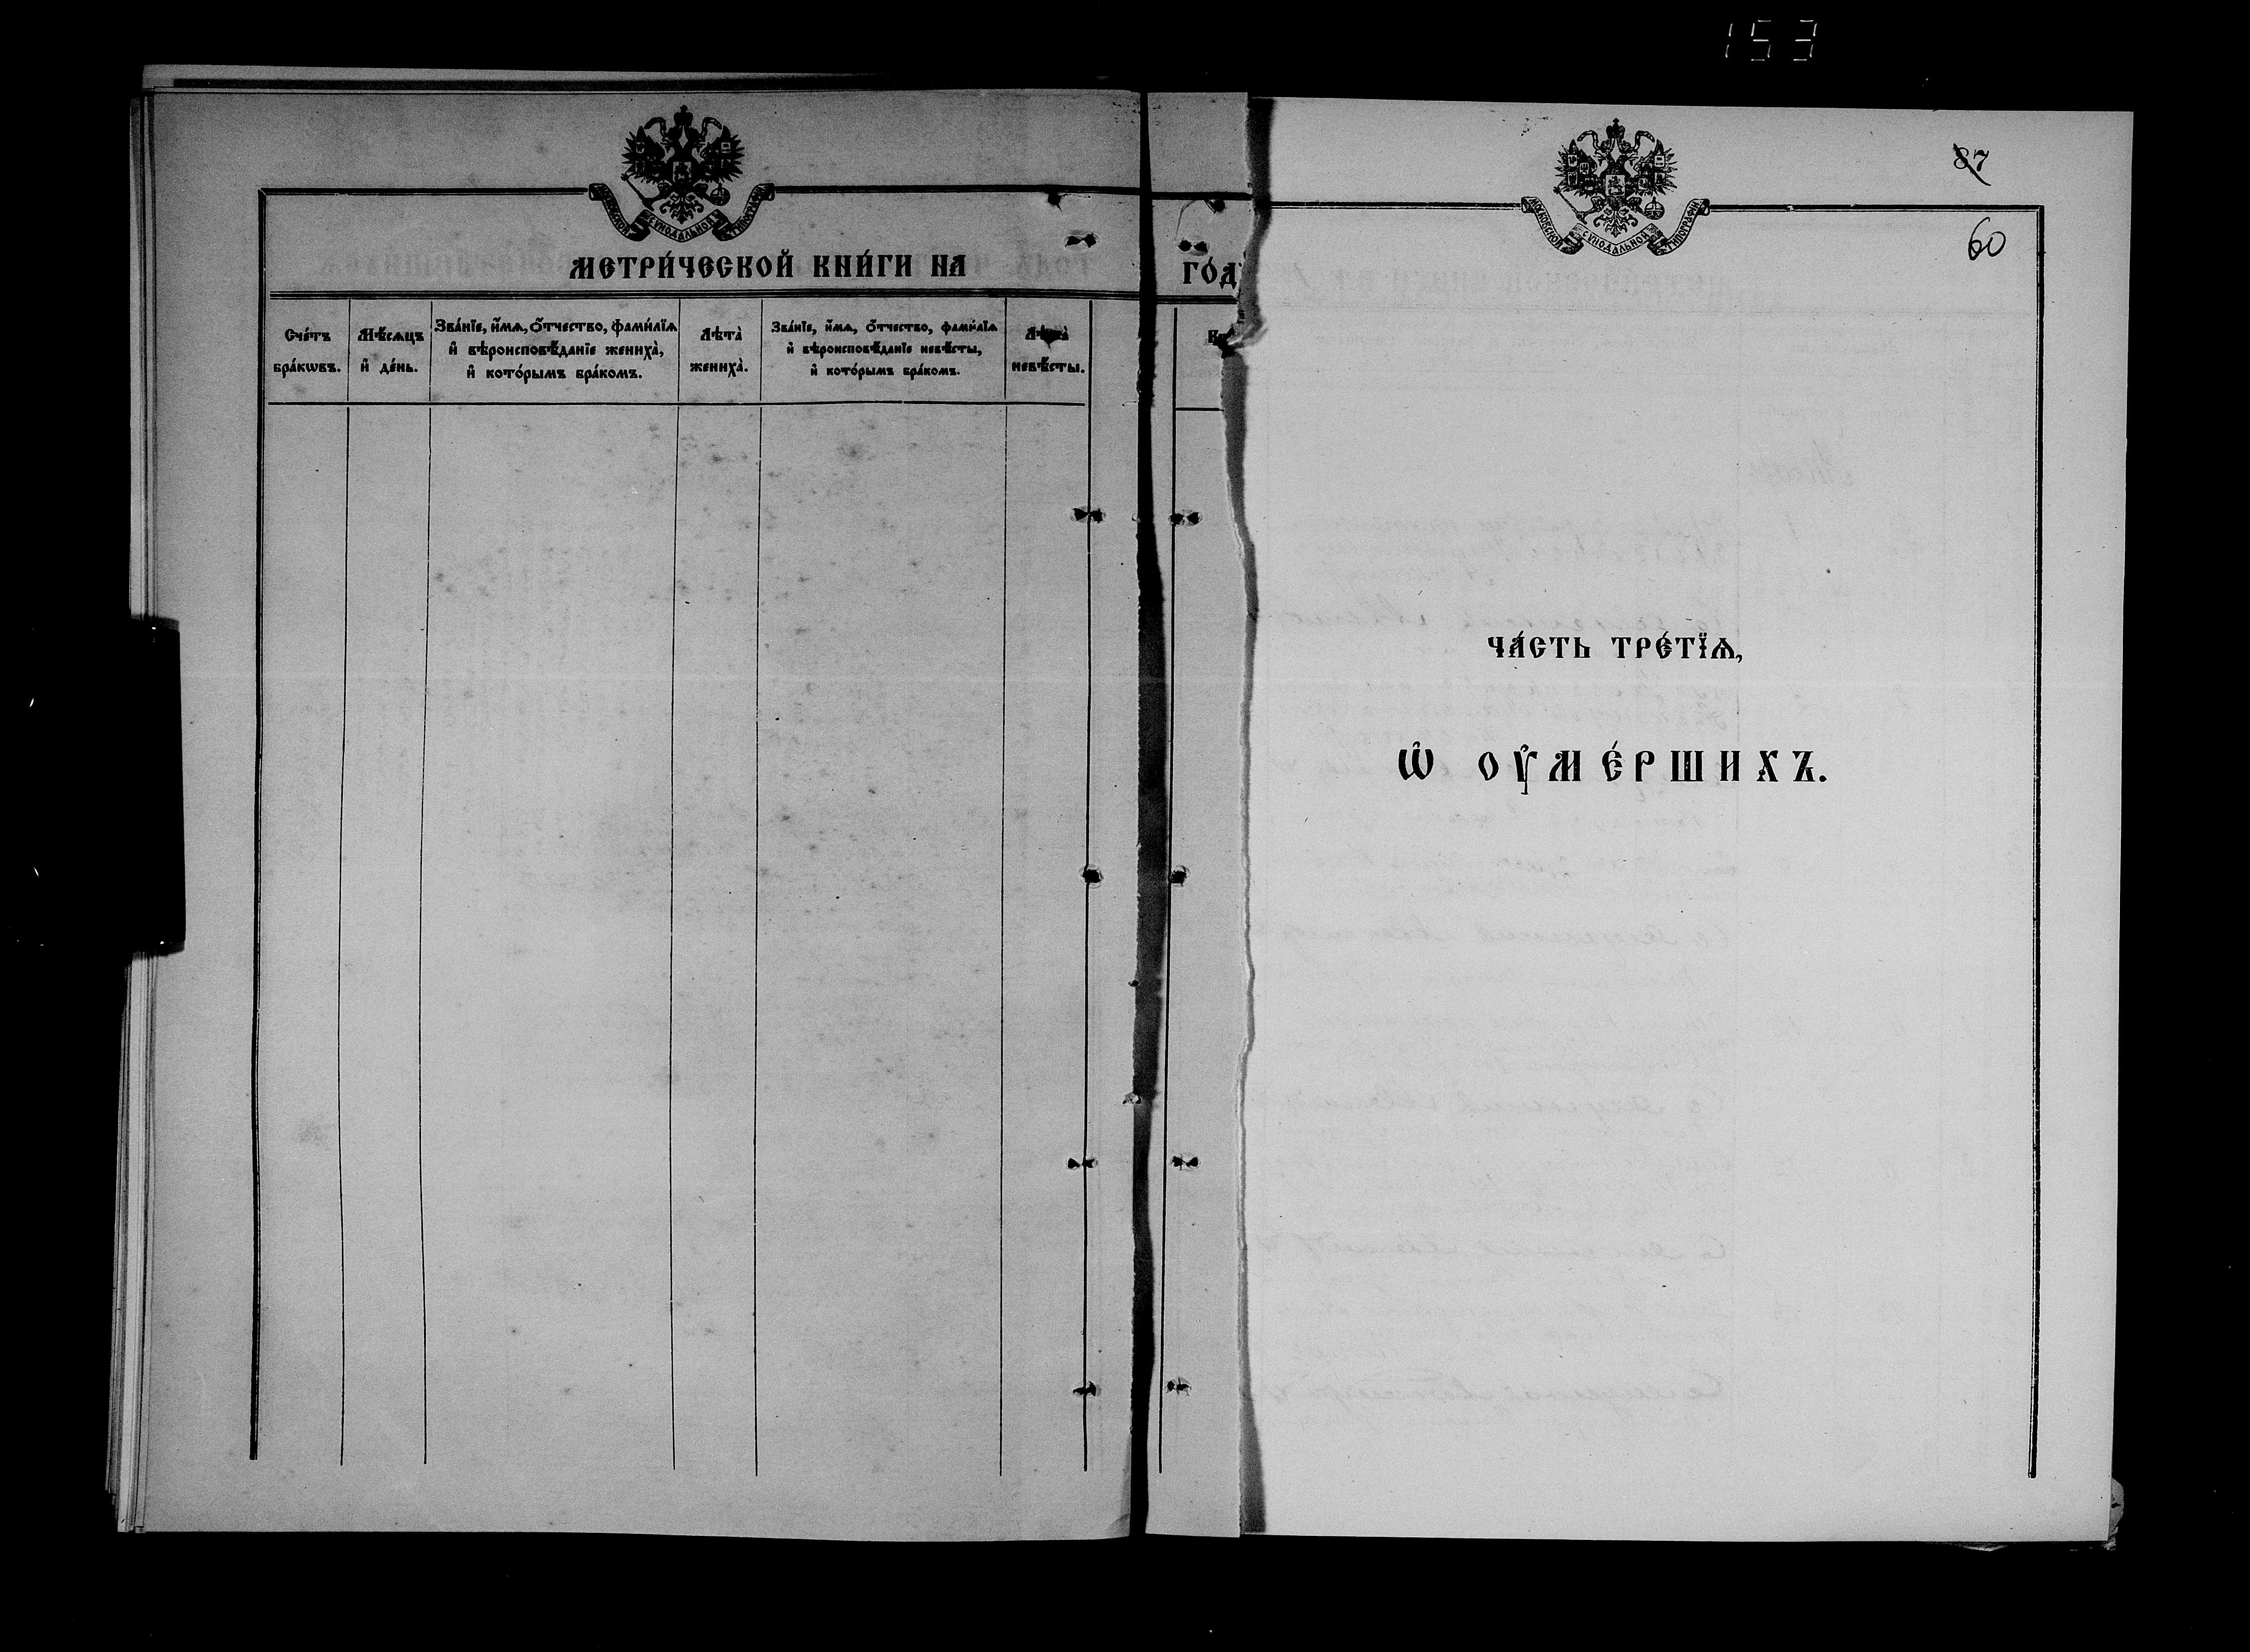 153
МОСКОВСКОЙ СѴНОДАЛЬНОЙ ТИПОГРАФІИ
МЕТРИ́ЧЕСКОЙ КНИ́ГИ НА
Сче́тъ бра́кѡвъ.
Мѣ́сѧцъ и҆ де́нь.
Зва́нїе, и҆́мѧ, ѻ҆́тчество, фами́лїѧ
и҆ вѣроисповѣ́данїе жениха̀,
и҆ кото́рымъ бра́комъ.
Лѣта̀ жениха̀.
Зва́нїе, и҆́мѧ, ѻ҆́тчество, фами́лїѧ
и҆ вѣроисповѣ́данїе невѣ́сты,
и҆ кото́рымъ бра́комъ.
Лѣта̀ невѣ́сты.
ГО́Д
МОСКОВСКОЙ СѴНОДАЛЬНОЙ ТИПОГРАФІИ
87
60
ЧА́СТЬ ТРЕ́ТЇѦ,
Ѡ҆ ОУ҆МЕ́РШИХЪ.